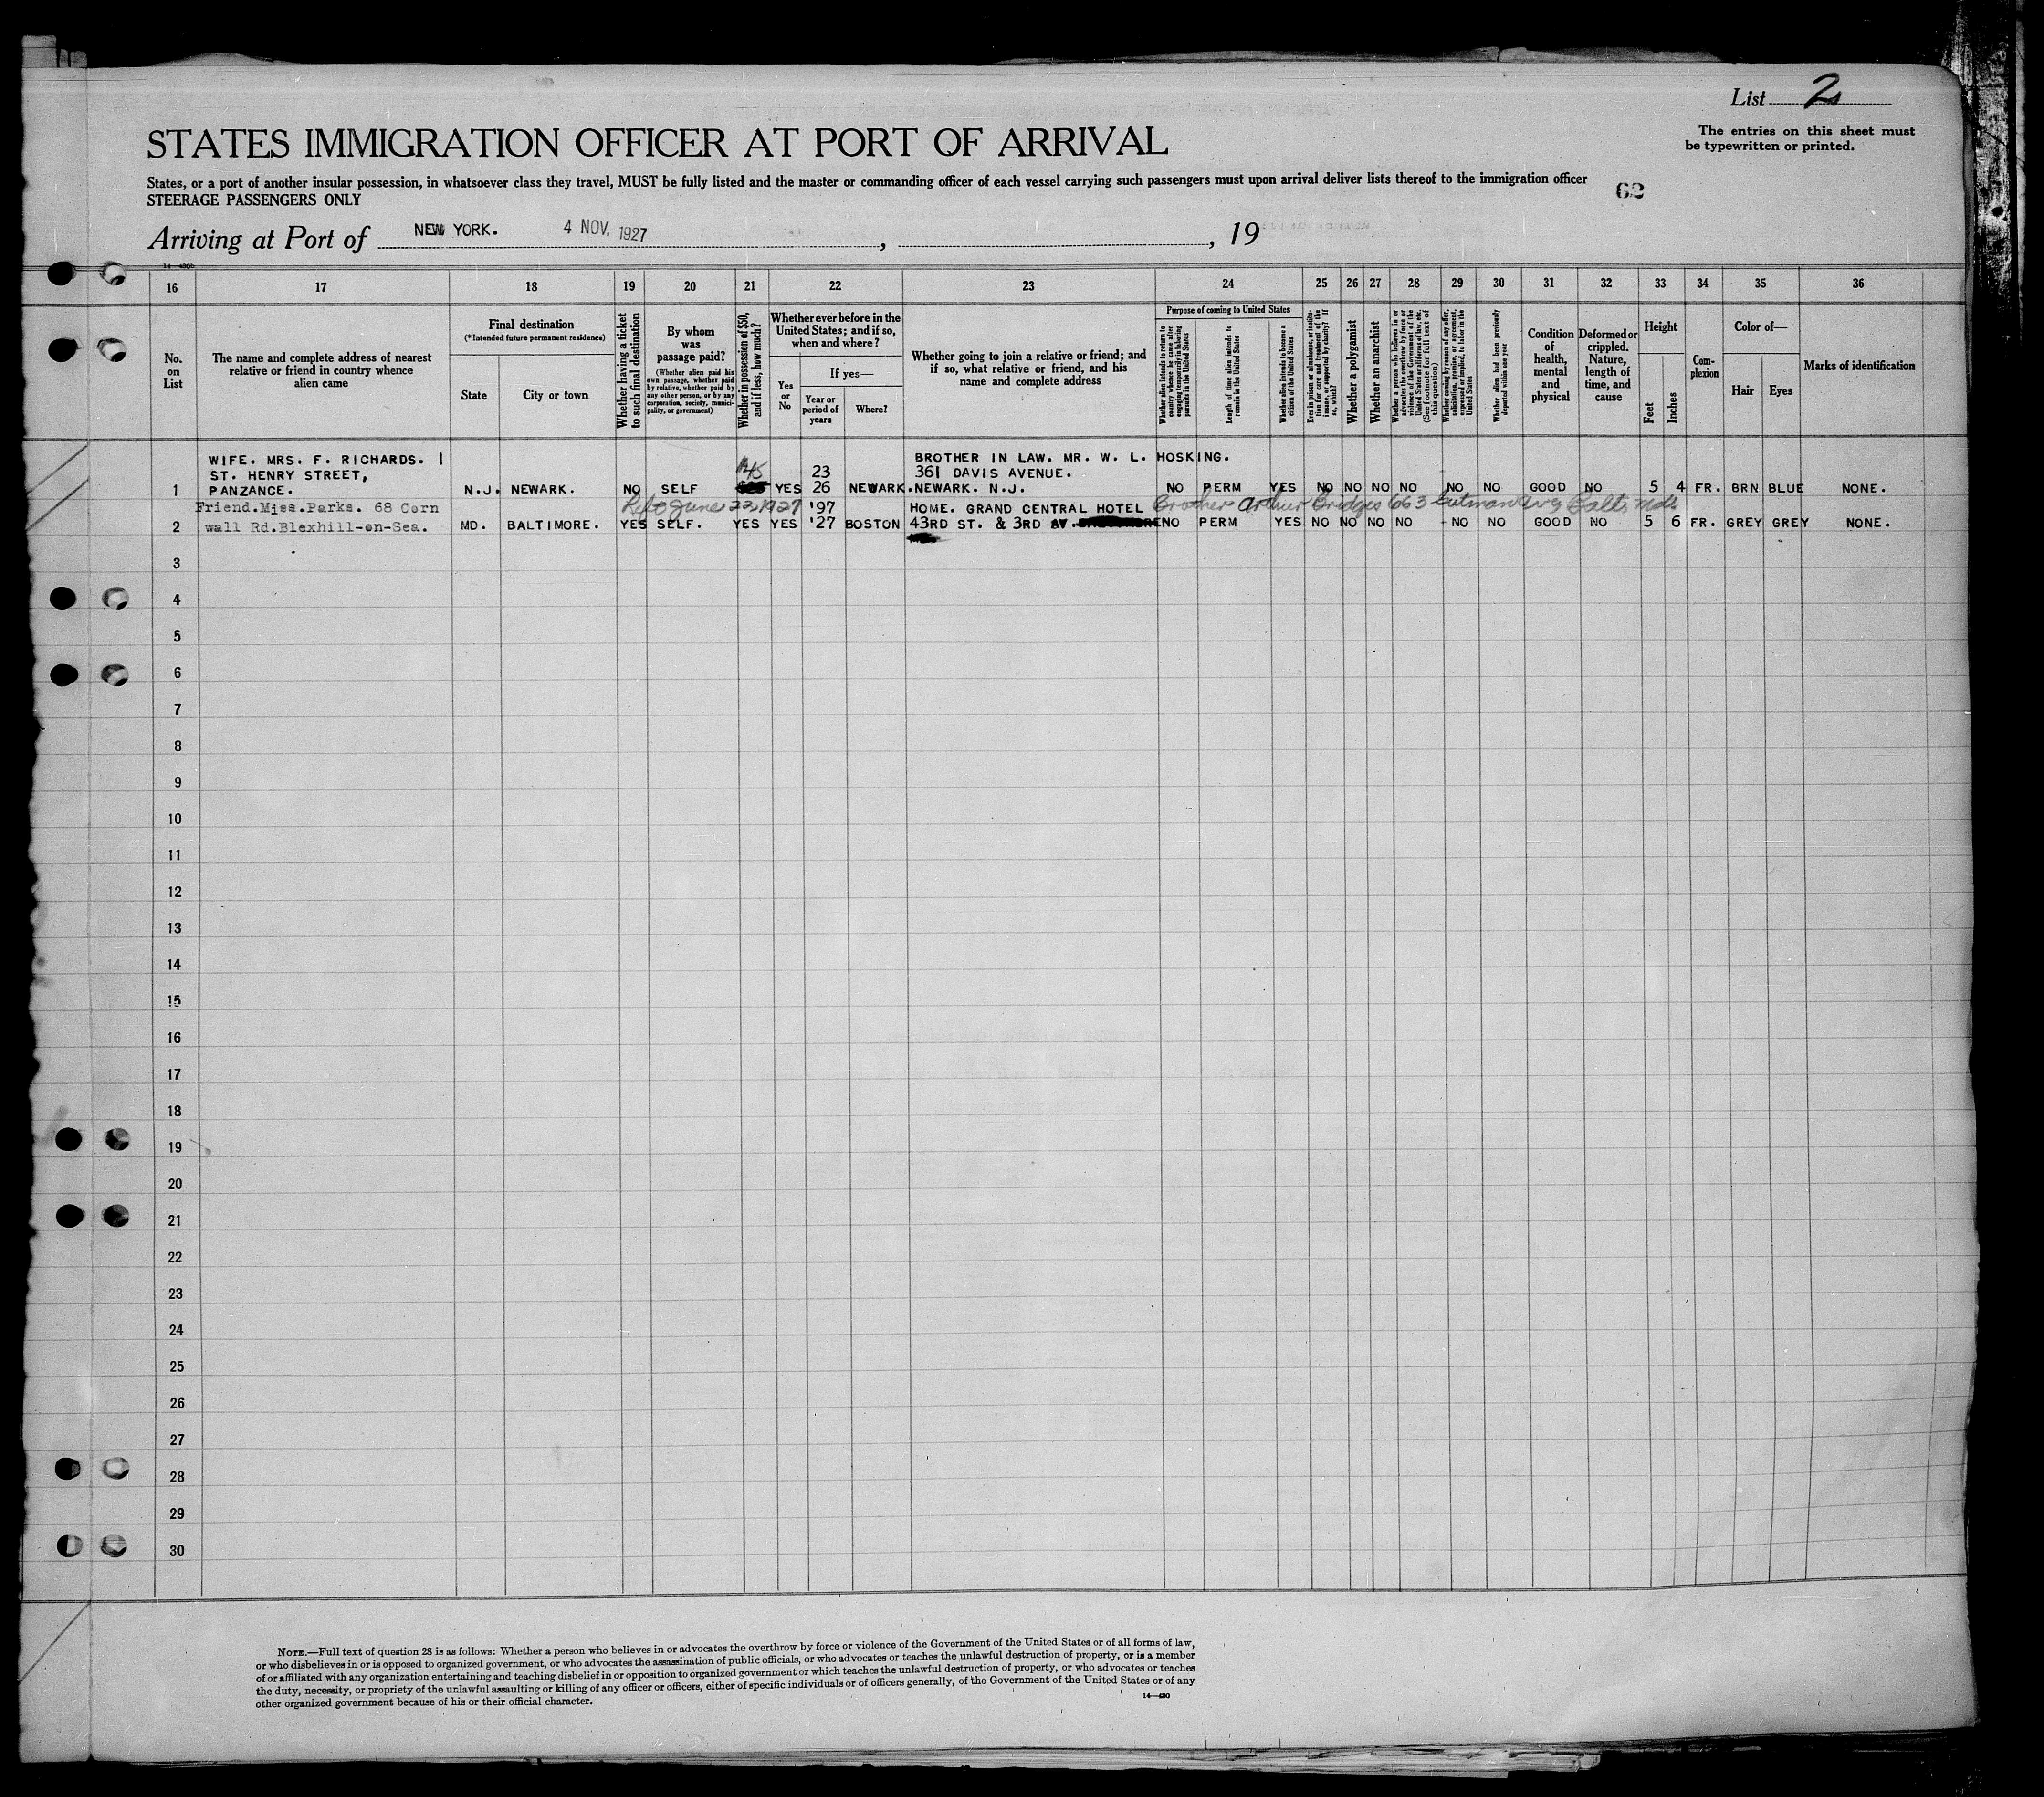 List 2
The entries on this sheet must
be typewritten or printed.
STATES IMMIGRATION OFFICER AT PORT OF ARRIVAL
States, or a port of another insular possession, in whatsoever class they travel, MUST be fully listed and the master or commanding officer of each vessel carrying such passengers must upon arrival deliver lists thereof to the immigration officer
STEERAGE PASSENGERS ONLY
62
Arriving at Port of NEW YORK. 4 NOV. 1927 , , 19
14—430b
16 17 18 19 20 21 22 23 24 25 26 27 28 29 30 31 32 33 34 35 36
No.
on
List
The name and complete address of nearest
relative or friend in country whence
alien came
Final destination
(*Intended future permanent residence)
State
City or town
Whether having a ticket
to such final destination
By whom
was
passage paid?
(Whether alien paid his
own passage, whether paid
by relative, whether paid by
any other person, or by any
corporation, society, munici-
pality, or government)
Whether in possession of $50,
and if less, how much?
Whether ever before in the
United States; and if so,
when and where?
Yes
or
No
If yes—
Year or
period of
years
Where?
Whether going to join a relative or friend; and
if so, what relative or friend, and his
name and complete address
Purpose of coming to United States
Whether alien intends to return to
country whence he came after
engaging temporarily in laboring
pursuits in the United States
Length of time alien intends to
remain in the United States
Whether alien intends to become a
citizen of the United States
Ever in prison or almshouse, or institu-
tion for care and treatment of the
insane, or supported by charity? If
so, which?
Whether a polygamist
Whether an anarchist
Whether a person who believes in or
advocates the overthrow by force or
violence of the Government of the
United States or all forms of law, etc.
(See footnote for full text of
this question)
Whether coming by reason of any offer,
solicitation, promise, or agreement,
expressed or implied, to labor in the
United States
Whether alien had been previously
deported within one year
Condition
of
health,
mental
and
physical
Deformed or
crippled.
Nature,
length of
time, and
cause
Height
Feet
Inches
Com-
plexion
Color of—
Hair
Eyes
Marks of identification
WIFE. MRS. F. RICHARDS. 1 BROTHER IN LAW. MR. W. L. HOSKING.
ST. HENRY STREET, 45 23 361 DAVIS AVENUE.
1 PANZANCE. N.J. NEWARK. NO SELF YES 26 NEWARK. NEWARK. N.J. NO PERM YES NO NO NO NO NO NO GOOD NO 5 4 FR. BRN BLUE NONE.
Friend.Miss.Parks. 68 Corn June 22, 1927 '97 HOME. GRAND CENTRAL HOTEL Brother Arthur Bridges 663 Gutman Ave Balt, Md.
2 wall Rd.Blexhill-on-Sea. MD. BALTIMORE. YES SELF. YES YES '27 BOSTON 43RD ST. & 3RD AV. NO PERM YES NO NO NO NO NO NO GOOD NO 5 6 FR. GREY GREY NONE.
3
4
5
6
7
8
9
10
11
12
13
14
15
16
17
18
19
20
21
22
23
24
25
26
27
28
29
30
NOTE.—Full text of question 28 is as follows: Whether a person who believes in or advocates the overthrow by force or violence of the Government of the United States or of all forms of law,
or who disbelieves in or is opposed to organized government, or who advocates the assassination of public officials, or who advocates or teaches the unlawful destruction of property, or is a member
of or affiliated with any organization entertaining and teaching disbelief in or opposition to organized government or which teaches the unlawful destruction of property, or who advocates or teaches
the duty, necessity, or propriety of the unlawful assaulting or killing of any officer or officers, either of specific individuals or of officers generally, of the Government of the United States or of any
other organized government because of his or their official character.
14—430